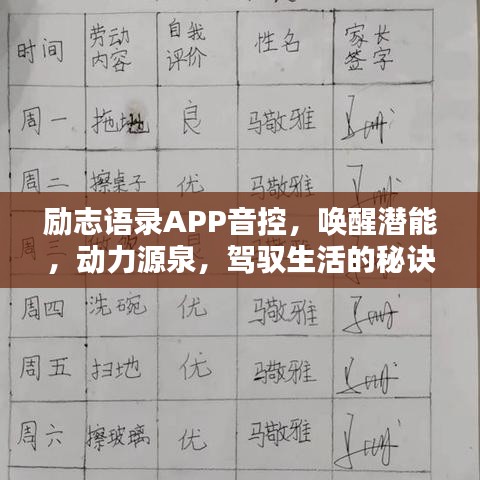 时间 劳动内容 自我评价 性名 家长签字
周一 拖地 良 马敬雅
周二 擦桌子 优 马敬雅
励志语录APP音控，唤醒潜能
，动力源泉，驾驭生活的秘诀
周四 洗碗 优 马敬雅
周五 扫地 优 马敬雅
周六 擦玻璃 优 马敬雅